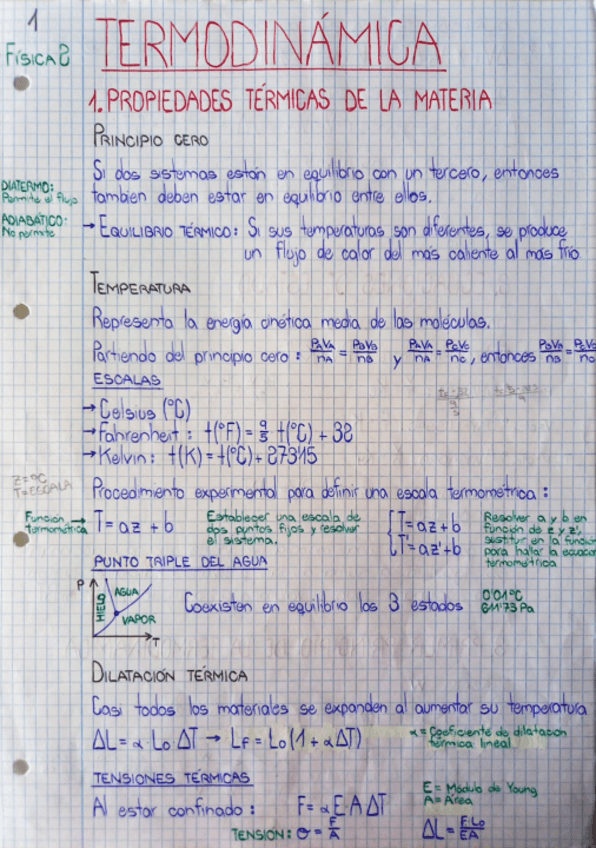 1
FÍSICA 2
TERMODINÁMICA
1. PROPIEDADES TÉRMICAS DE LA MATERIA
PRINCIPIO CERO
Si dos sistemas están en equilibrio con un tercero, entonces
tambien deben estar en equilibrio entre ellos.
DIATERMO:
Permite el flujo
ADIABÁTICO:
No permite
→ EQUILIBRIO TÉRMICO: Si sus temperaturas son diferentes, se produce
un flujo de calor del más caliente al más frío
TEMPERATURA
Representa la energía cinética media de las moléculas.
Partiendo del principio cero: PAVA/nA = PBVB/nB y PAVA/nA = PCVC/nC, entonces PBVB/nB = PCVC/nC
ESCALAS
→ Celsius (ºC)
→ Fahrenheit: t(ºF) = 9/5 t(ºC) + 32
→ Kelvin: t(K) = t(ºC) + 273'15
Z = ºC
T = ESCALA
Procedimiento experimental para definir una escala termométrica:
Función →
termométrica
T = az + b
Establecer una escala de
dos puntos fijos y resolver
el sistema.
{T = az + b
T' = az' + b
Resolver a y b en
función de z y z',
sustituir en la función
para hallar la ecuacion
termométrica
PUNTO TRIPLE DEL AGUA
P
HIELO
AGUA
VAPOR
T
Coexisten en equilibrio los 3 estados
0'01ºC
611'73 Pa
DILATACIÓN TÉRMICA
Casi todos los materiales se expanden al aumentar su temperatura
ΔL = α · L0 · ΔT → LF = L0(1 + αΔT)
α = Coeficiente de dilatacion
térmica lineal
TENSIONES TÉRMICAS
Al estar confinado: F = αE·AΔT
E = Módulo de Young
A = Área
TENSIÓN: σ = F/A
ΔL = F·L0/EA